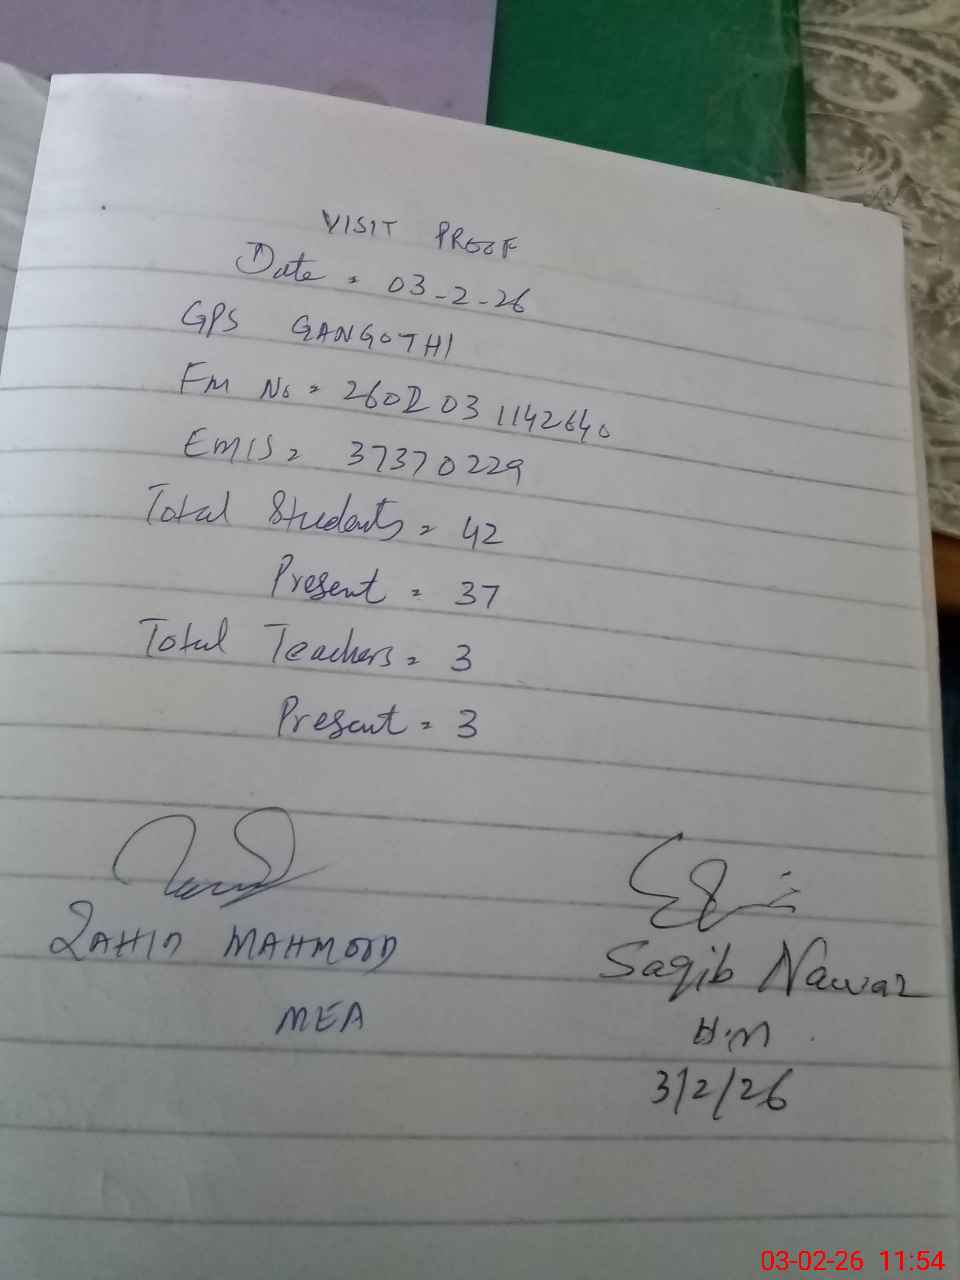 VISIT PROOF
Date = 03-2-26
GPS GANGOTHI
Fm No = 260202031142640
EMIS = 37370229
Total Students = 42
Present = 37
Total Teachers = 3
Present = 3
ZAHID MAHMOOD
Saqib Nawaz
MEA
H.M
3/2/26
03-02-26 11:54